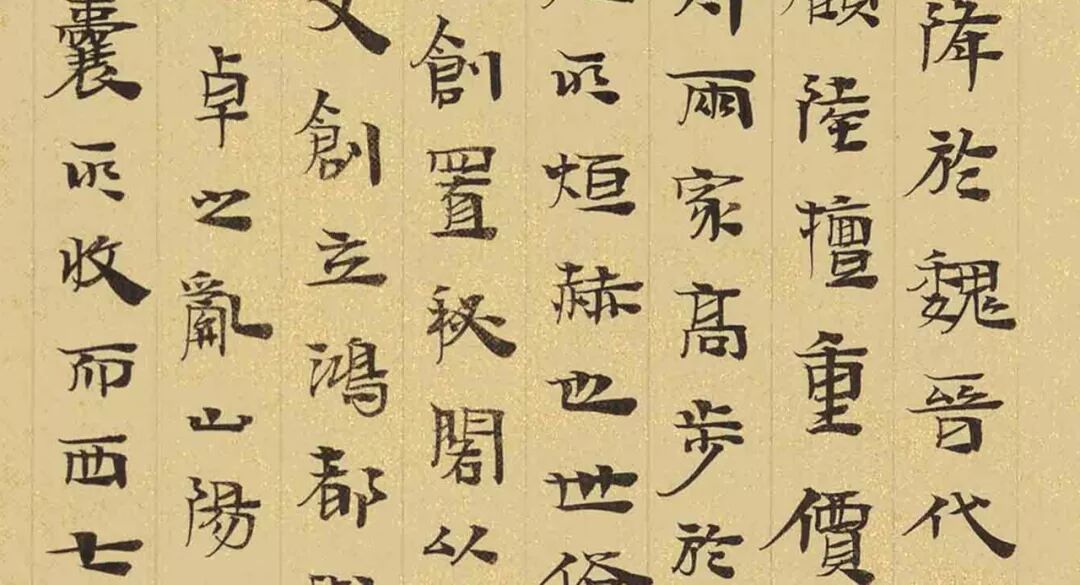 降於魏晉代
顧陸擅重價
兩家高步於
所烜赫也世俗
創置秘閣以
文創立鴻都
卓之亂山陽
囊所收而西七